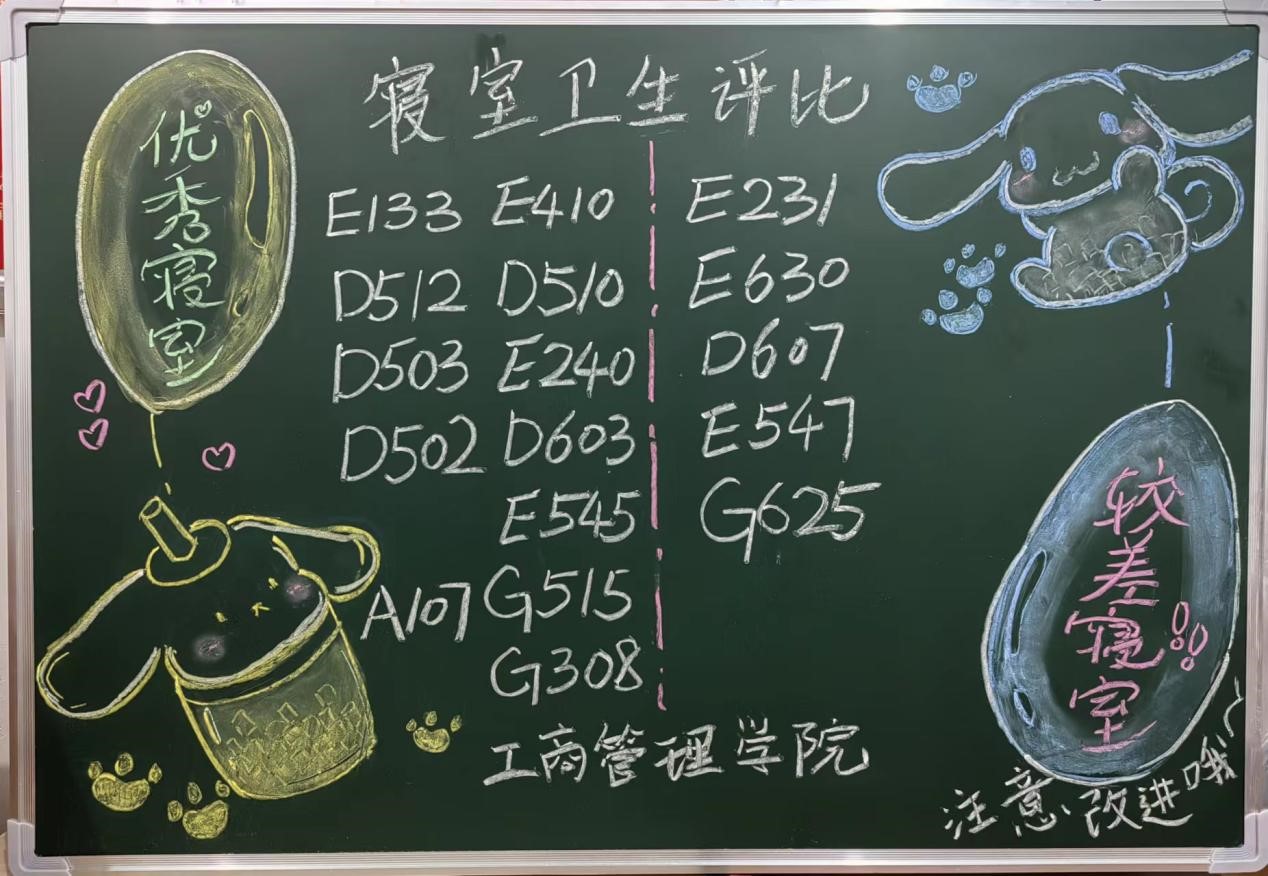 寝室卫生评比
优秀寝室
E133 E410
D512 D510
D503 E240
D502 D603
E545
A107 G515
G308
E231
E630
D607
E547
G625
较差寝室!!
注意改进哦~
工商管理学院